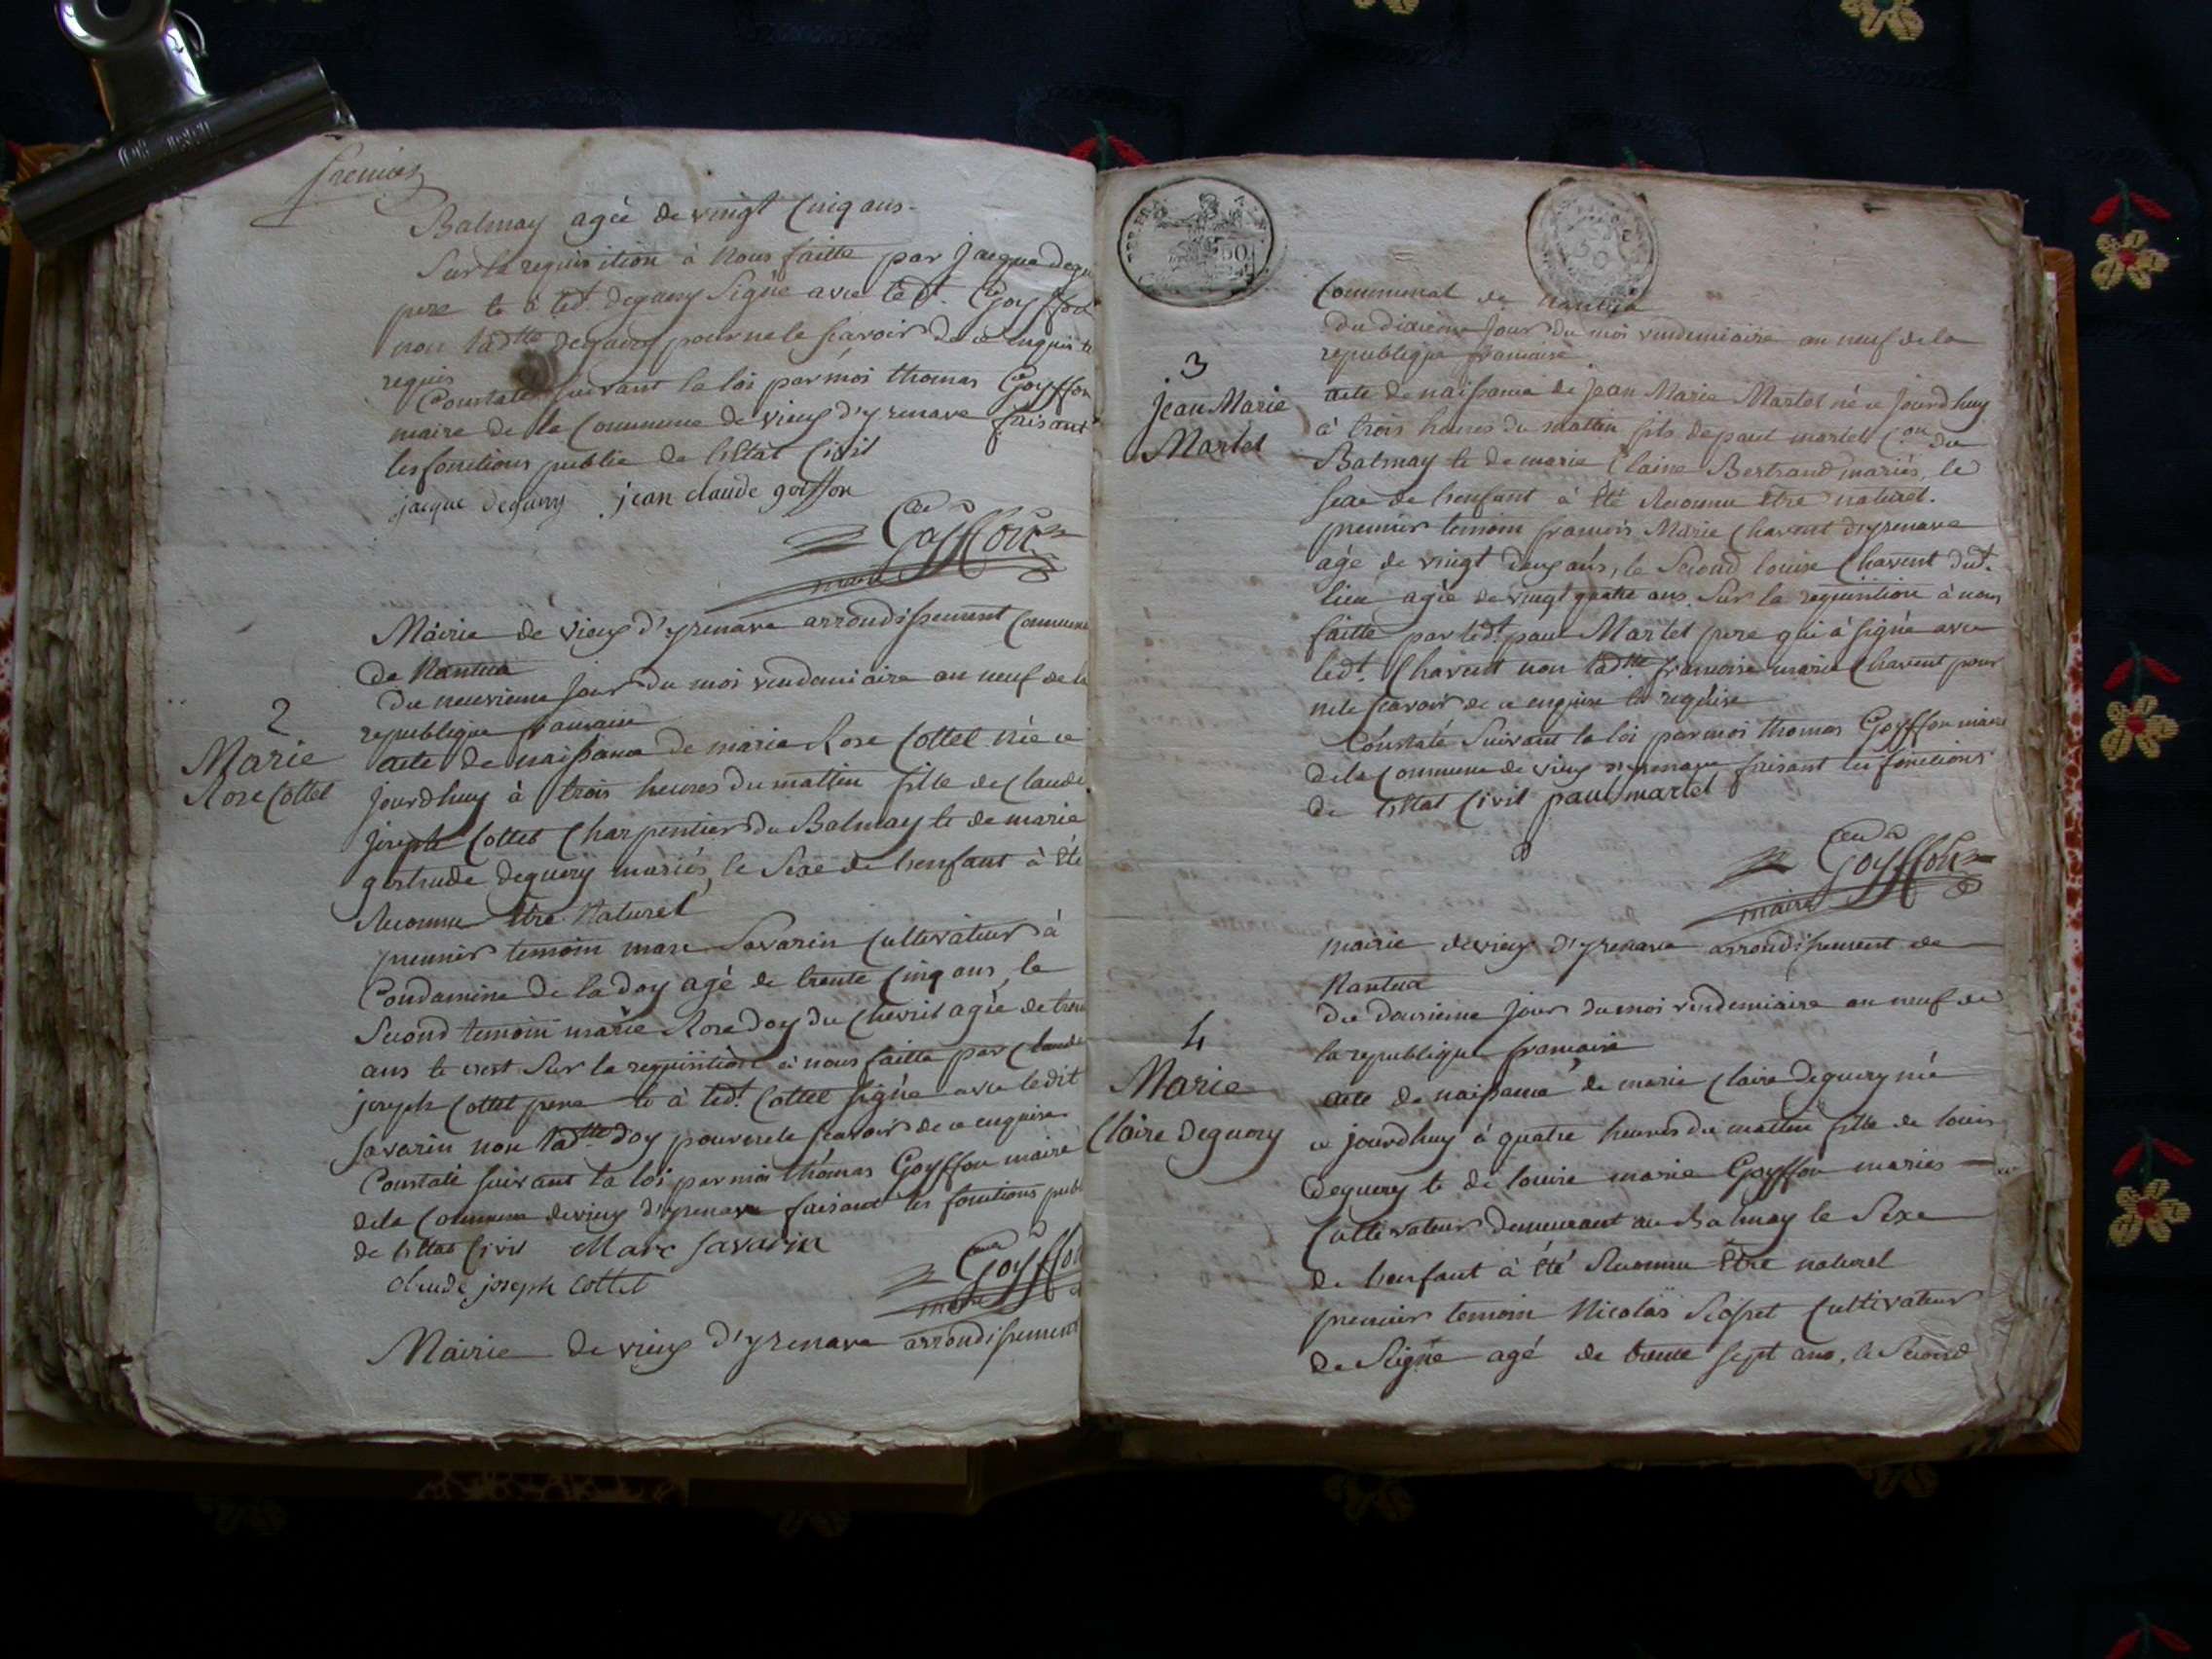 premier
Balmay agée de vingt Cinq ans.
Sur la requisition à nous faitte par jacque degu
pere te à ledt. deguery Signé avec ledt. Goyffon
non ladtte deguery pour ne le scavoir de ce enquis te
requis
Constaté suivant la loi par moi thomas Goyffon
maire de la Commune de vieux d'yzenave faisant
les fonctions public de l'Etat Civil
jacque deguery jean claude goiffon
Goyffon
maire
Mairie de vieux d'yzenave arrondissement Commune
de Nantua
du neuvieme jour du moi vendemiaire an neuf de la
republique francaise
2
Marie
Rose Cottet
acte de naissance de marie Rose Cottet née ce
jourdhuy à trois heures du mattin fille de Claude
joseph Cottet Charpentier du Balmay te de marie
gertrude deguery mariés, le Sexe de lenfant à été
Reconnu Etre Naturel
premier temoin marc Savarin Cultivateur à
Condamine de la doy agé de trente Cinq ans, le
Second temoin marie Rose doy du Chevril agée de trente
ans te crest Sur la requisition à nous faitte par Claude
joseph Cottet pere te à ledt. Cottet signé avec ledit
savarin non ladtte doy pour ne le scavoir de ce enquise
Constaté suivant la loi par moi thomas Goyffon maire
dela Commune de vieux d'yzenave faisant les fonctions publ
de l'Etat Civil Marc Savarin
claude joseph cottet
Goyffon
maire
Mairie de vieux d'yzenave arrondissement
50
Communal de Nantua
du dixieme jour du moi vendemiaire an neuf de la
republique francaise
3
jean Marie
Martel
acte de naissance de jean Marie Martel né ce jourdhuy
à trois heures du mattin fils de paul martel Con du
Balmay te de marie Claine Bertrand mariés, le
sexe de lenfant à Eté Reconnu Etre naturel.
premier temoin francois Marie Chavent dyzenave
agé de vingt deux ans, le Second louise Chavent dudt.
lieu agée de vingt quatre ans. Sur la requisition à nous
faitte par ledt. paul Martel pere qui à signé avec
ledt. Chavent non ladtte francoise marie Chavent pour
ne le scavoir de ce enquise te requise
Constaté Suivant la loi par moi thomas Goyffon maire
dela Commune de vieux d'yzenave faisant les fonctions
de l'Etat Civil paul martel
Goyffon
maire
mairie de vieux d'yzenave arrondissement de
Nantua
du douzieme jour du moi vendemiaire an neuf de
la republique francaise
4
Marie
Claire deguery
acte de naissance de marie Claire deguery né
ce jourdhuy à quatre heures du mattin fille de louis
deguery te de louise marie Goyffon mariés
Cultivateur demeurant au Balmay le Sexe
de lenfant à Eté Reconnu Etre naturel
premier temoin Nicolas Cultivateur
de agé de trente sept ans, le Second